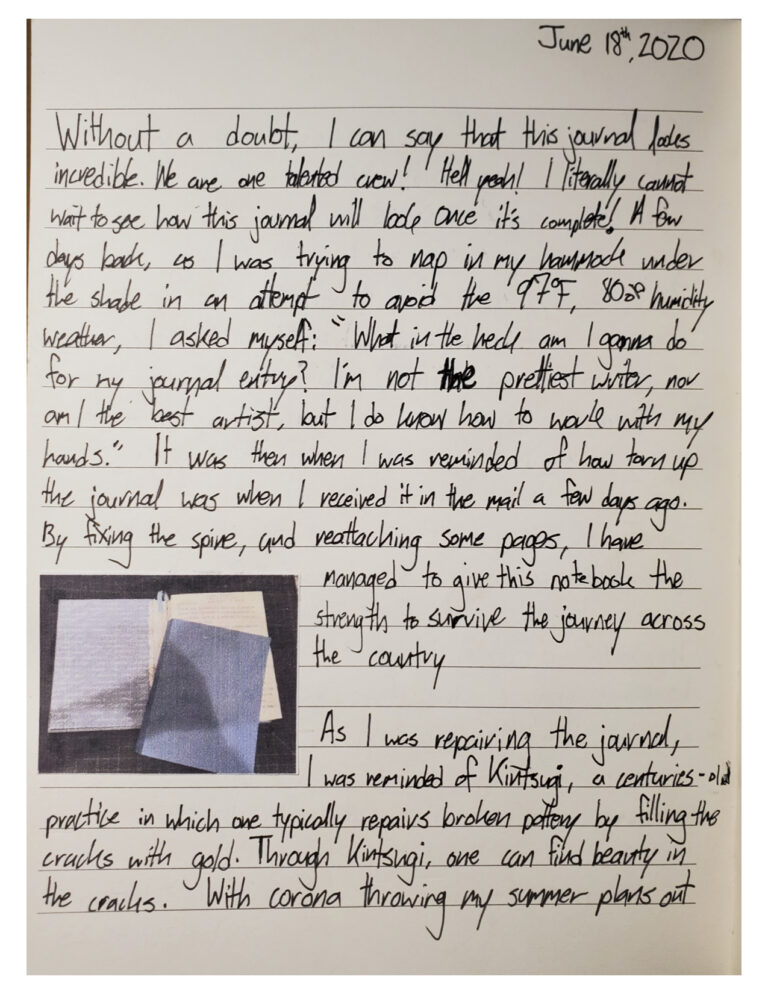 June 18th, 2020
Without a doubt, I can say that this journal looks
incredible. We are one talented crew! Hell yeah! I literally cannot
wait to see how this journal will look once it's complete! A few
days back, as I was trying to nap in my hammock under
the shade in an attempt to avoid the 97°F, 80% humidity
weather, I asked myself: "What in the heck am I gonna do
for my journal entry? I'm not the prettiest writer, nor
am I the best artist, but I do know how to work with my
hands." It was then when I was reminded of how torn up
the journal was when I received it in the mail a few days ago.
By fixing the spine, and reattaching some pages, I have
managed to give this notebook the
strength to survive the journey across
the country
As I was repairing the journal,
I was reminded of Kintsugi, a centuries-old
practice in which one typically repairs broken pottery by filling the
cracks with gold. Through Kintsugi, one can find beauty in
the cracks. With corona throwing my summer plans out